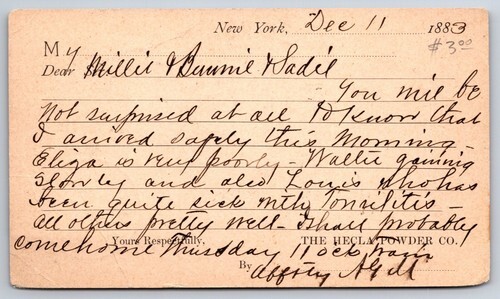 New York, Dec 11 1883
$3.00
My
Dear Millie & Bunnie & Sadie
You will be
not surprised at all to know that
I arrived safely this morning -
Eliza is very poorly - Wallie gaining
slowly and also Louis who has
been quite sick with Tonsilitis -
all others pretty well - I shall probably
Yours Respectfully, THE HECLA POWDER CO.
come home Thursday 11 ock train
By Affcty